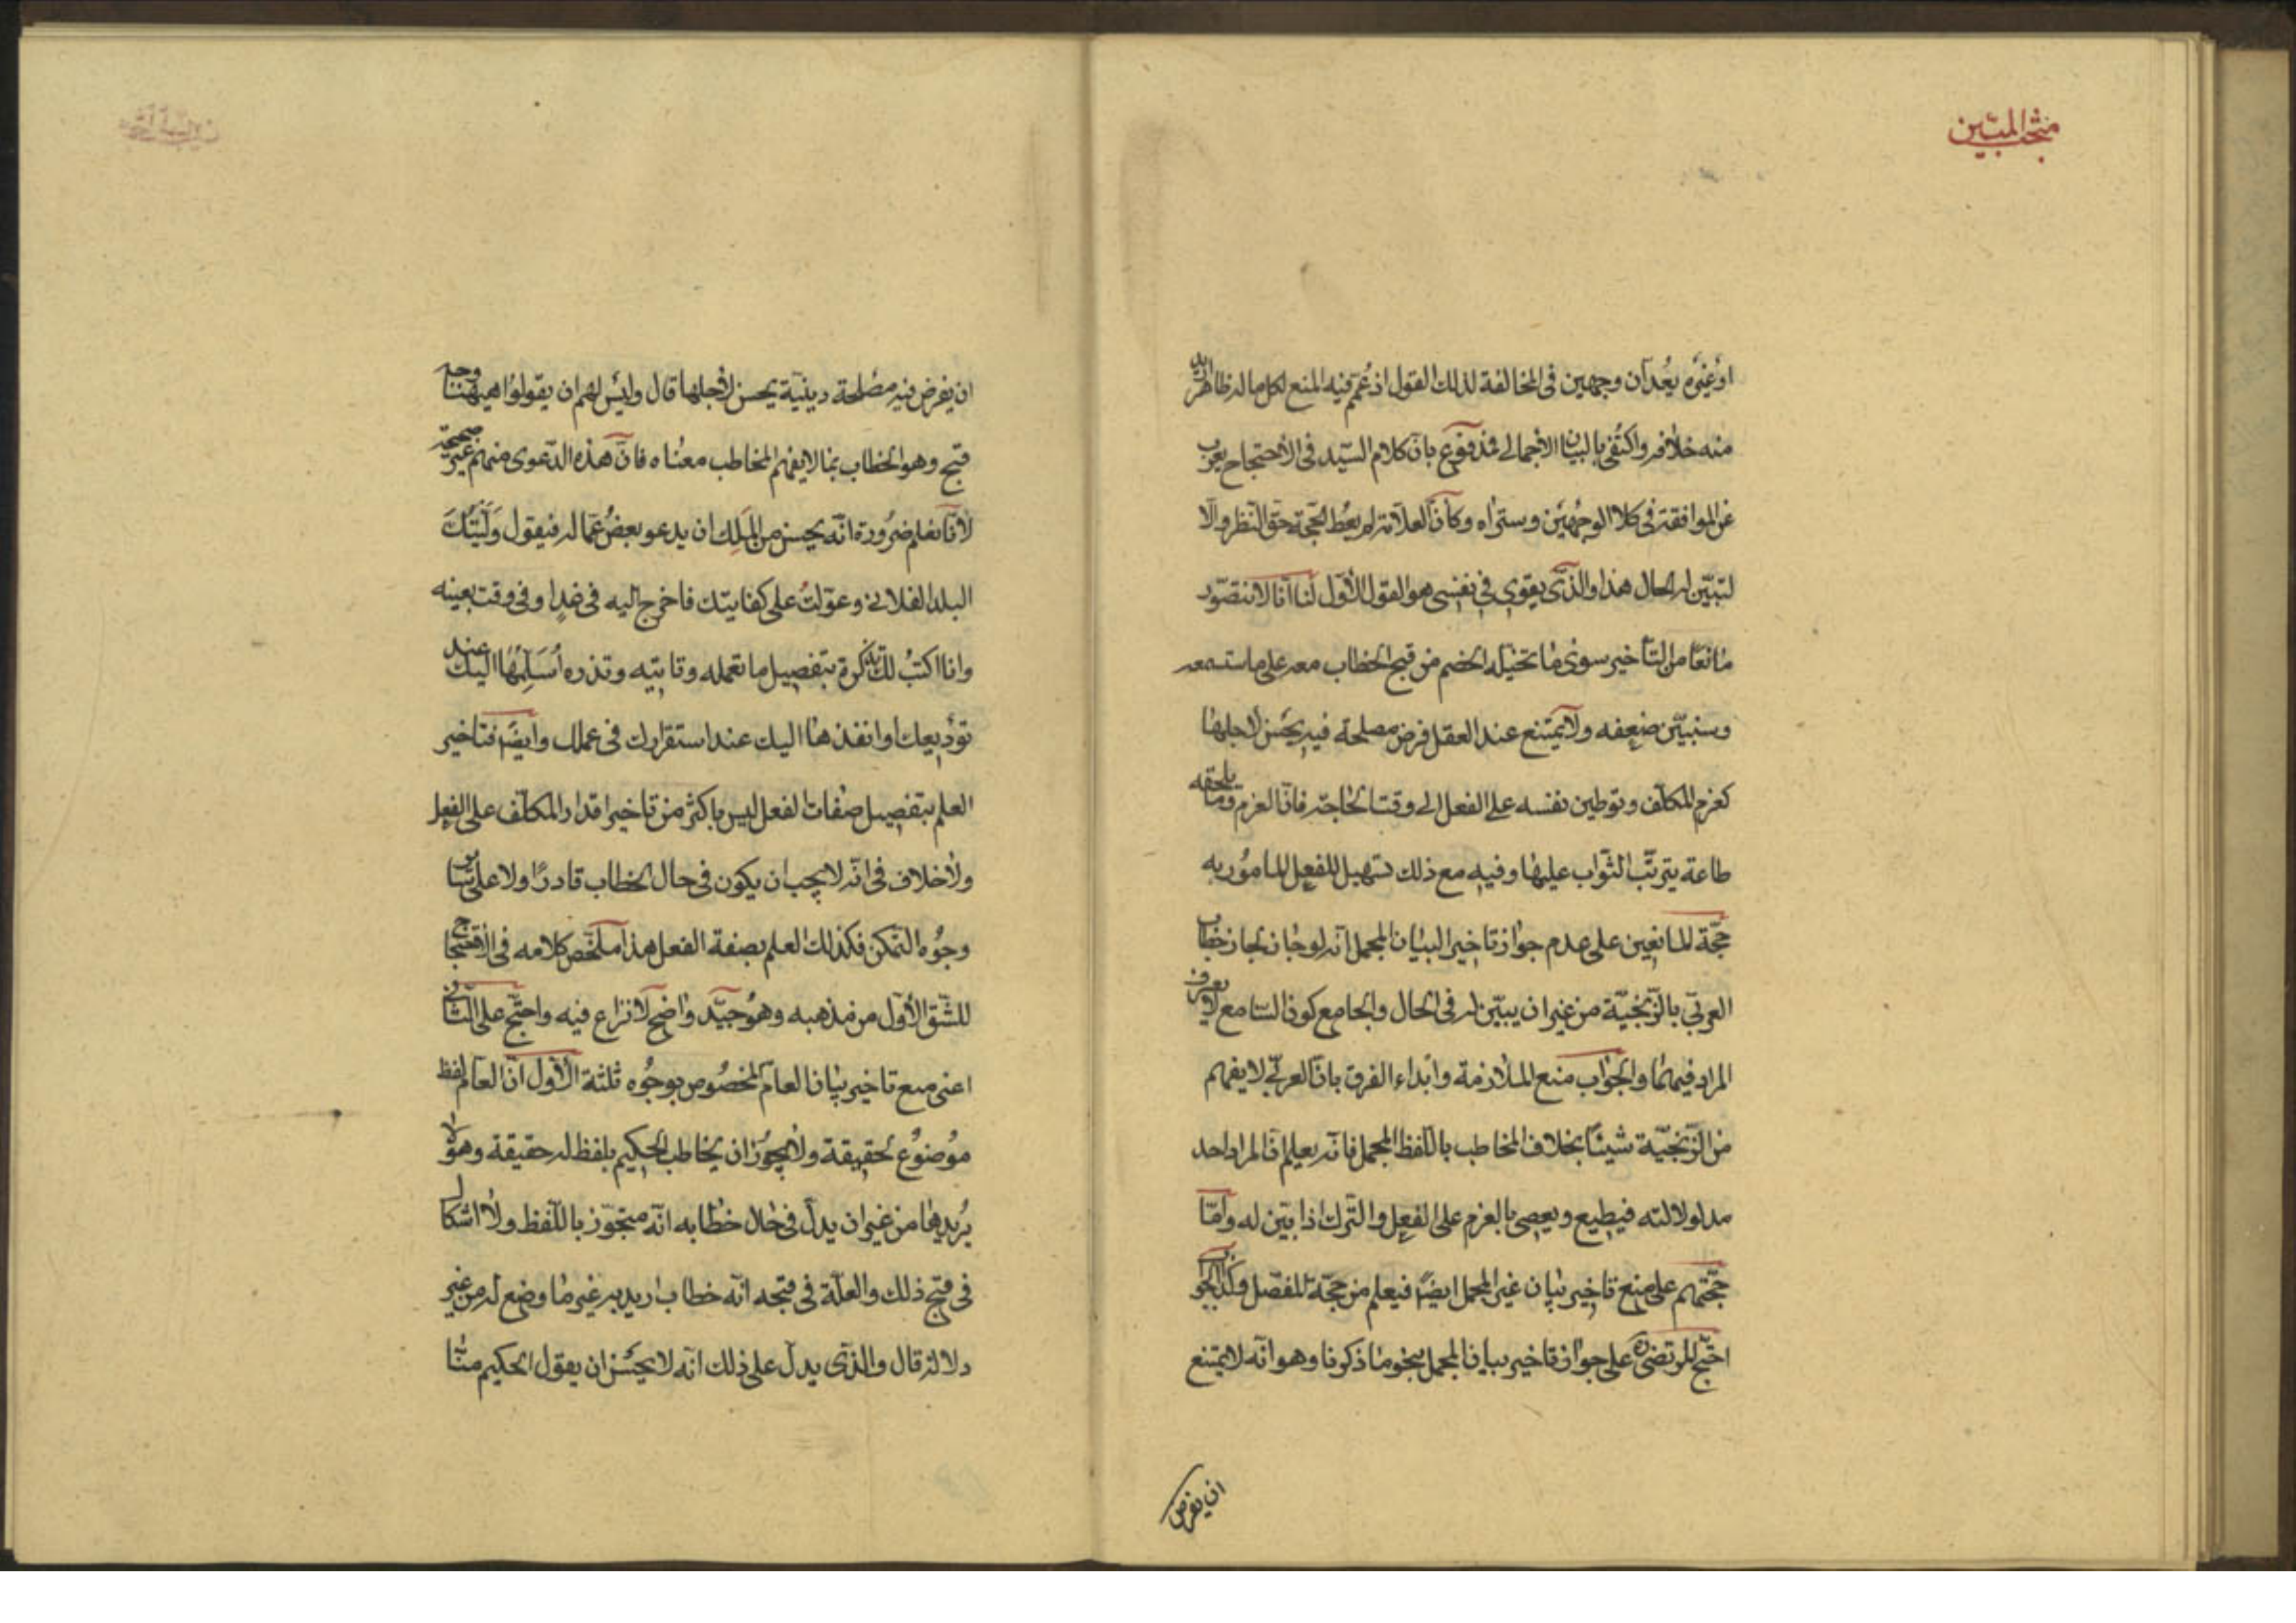 مبحث المبين
او غيره يعدان وجهين في المخالفة لذلك القول اذ عمم فيه المنع لكل ما له ظاهر اريد
منه خلافه واكتفى بالبيان الاجمالي فمدفوع بان كلام السيد في الاحتجاج يعرب
عن الموافقة في كلا الوجهين وستراه وكان العلامة لم يعط الحجة حق النظر والا
لتبين له الحال هذا والذي يقوى في نفسي هو القول الاول لنا انا لا نتصور
مانعا من التاخير سوى ما تخيله الخصم من قبح الخطاب معه على ما ستسمعه
وسنبين ضعفه ولا يمتنع عند العقل فرض مصلحة فيه يحسن لاجلها
كعزم المكلف وتوطين نفسه على الفعل الى وقت الحاجة فان العزم وما يلحقه
طاعة يترتب الثواب عليها وفيه مع ذلك تسهيل للفعل المامور به
حجة المانعين على عدم جواز تاخير البيان المجمل انه لو جاز لجاز خطاب
العربي بالزنجية من غير ان يبين له في الحال والجامع كون السامع لا يعرف
المراد فيهما والجواب منع الملازمة وابداء الفرق بان العربي لا يفهم
من الزنجية شيئا بخلاف المخاطب باللفظ المجمل فانه يعلم ان المراد احد
مدلولاته فيطيع ويعصي بالعزم على الفعل والترك اذا بين له واما
حجتهم على منع تاخير بيان غير المجمل ايضا فيعلم من حجة المفصل وكذا الجواب
احتج المرتضى ره على جواز تاخير بيان المجمل بنحو ما ذكرنا وهو انه لا يمتنع
ان يفرض
ان يفرض فيه مصلحة دينية يحسن لاجلها قال وليس لهم ان يقولوا ههنا وجه
قبح وهو الخطاب بما لا يفهم المخاطب معناه فان هذه الدعوى منهم غير صحيحة
لانا نعلم ضرورة انه يحسن من الملك ان يدعو بعض عماله فيقول وليتك
البلد الفلاني وعولت على كفايتك فاخرج اليه في غد او في وقت بعينه
وانا اكتب لك تذكرة بتفصيل ما تعمله وتاتيه وتذره اسلمها اليك عند
توديعك او انفذها اليك عند استقرارك في عملك وايضا فتاخير
العلم بتفصيل صفات الفعل ليس باكثر من تاخير اقدار المكلف على الفعل
ولا خلاف في انه لا يجب ان يكون في حال الخطاب قادرا ولا على سائر
وجوه التمكن فكذلك العلم بصفة الفعل هذا ملخص كلامه في الاحتجاج
للشق الاول من مذهبه وهو جيد واضح لا نزاع فيه واحتج على الثاني
اعني منع تاخير بيان العام المخصوص بوجوه ثلثة الاول ان العام لفظ
موضوع لحقيقة ولا يجوز ان يخاطب الحكيم بلفظ له حقيقة وهو لا
يريدها من غير ان يدل في حال خطابه انه متجوز باللفظ ولا اشكال
في قبح ذلك والعلة في قبحه انه خطاب اريد به غير ما وضع له من غير
دلالة قال والذي يدل على ذلك انه لا يحسن ان يقول الحكيم منا